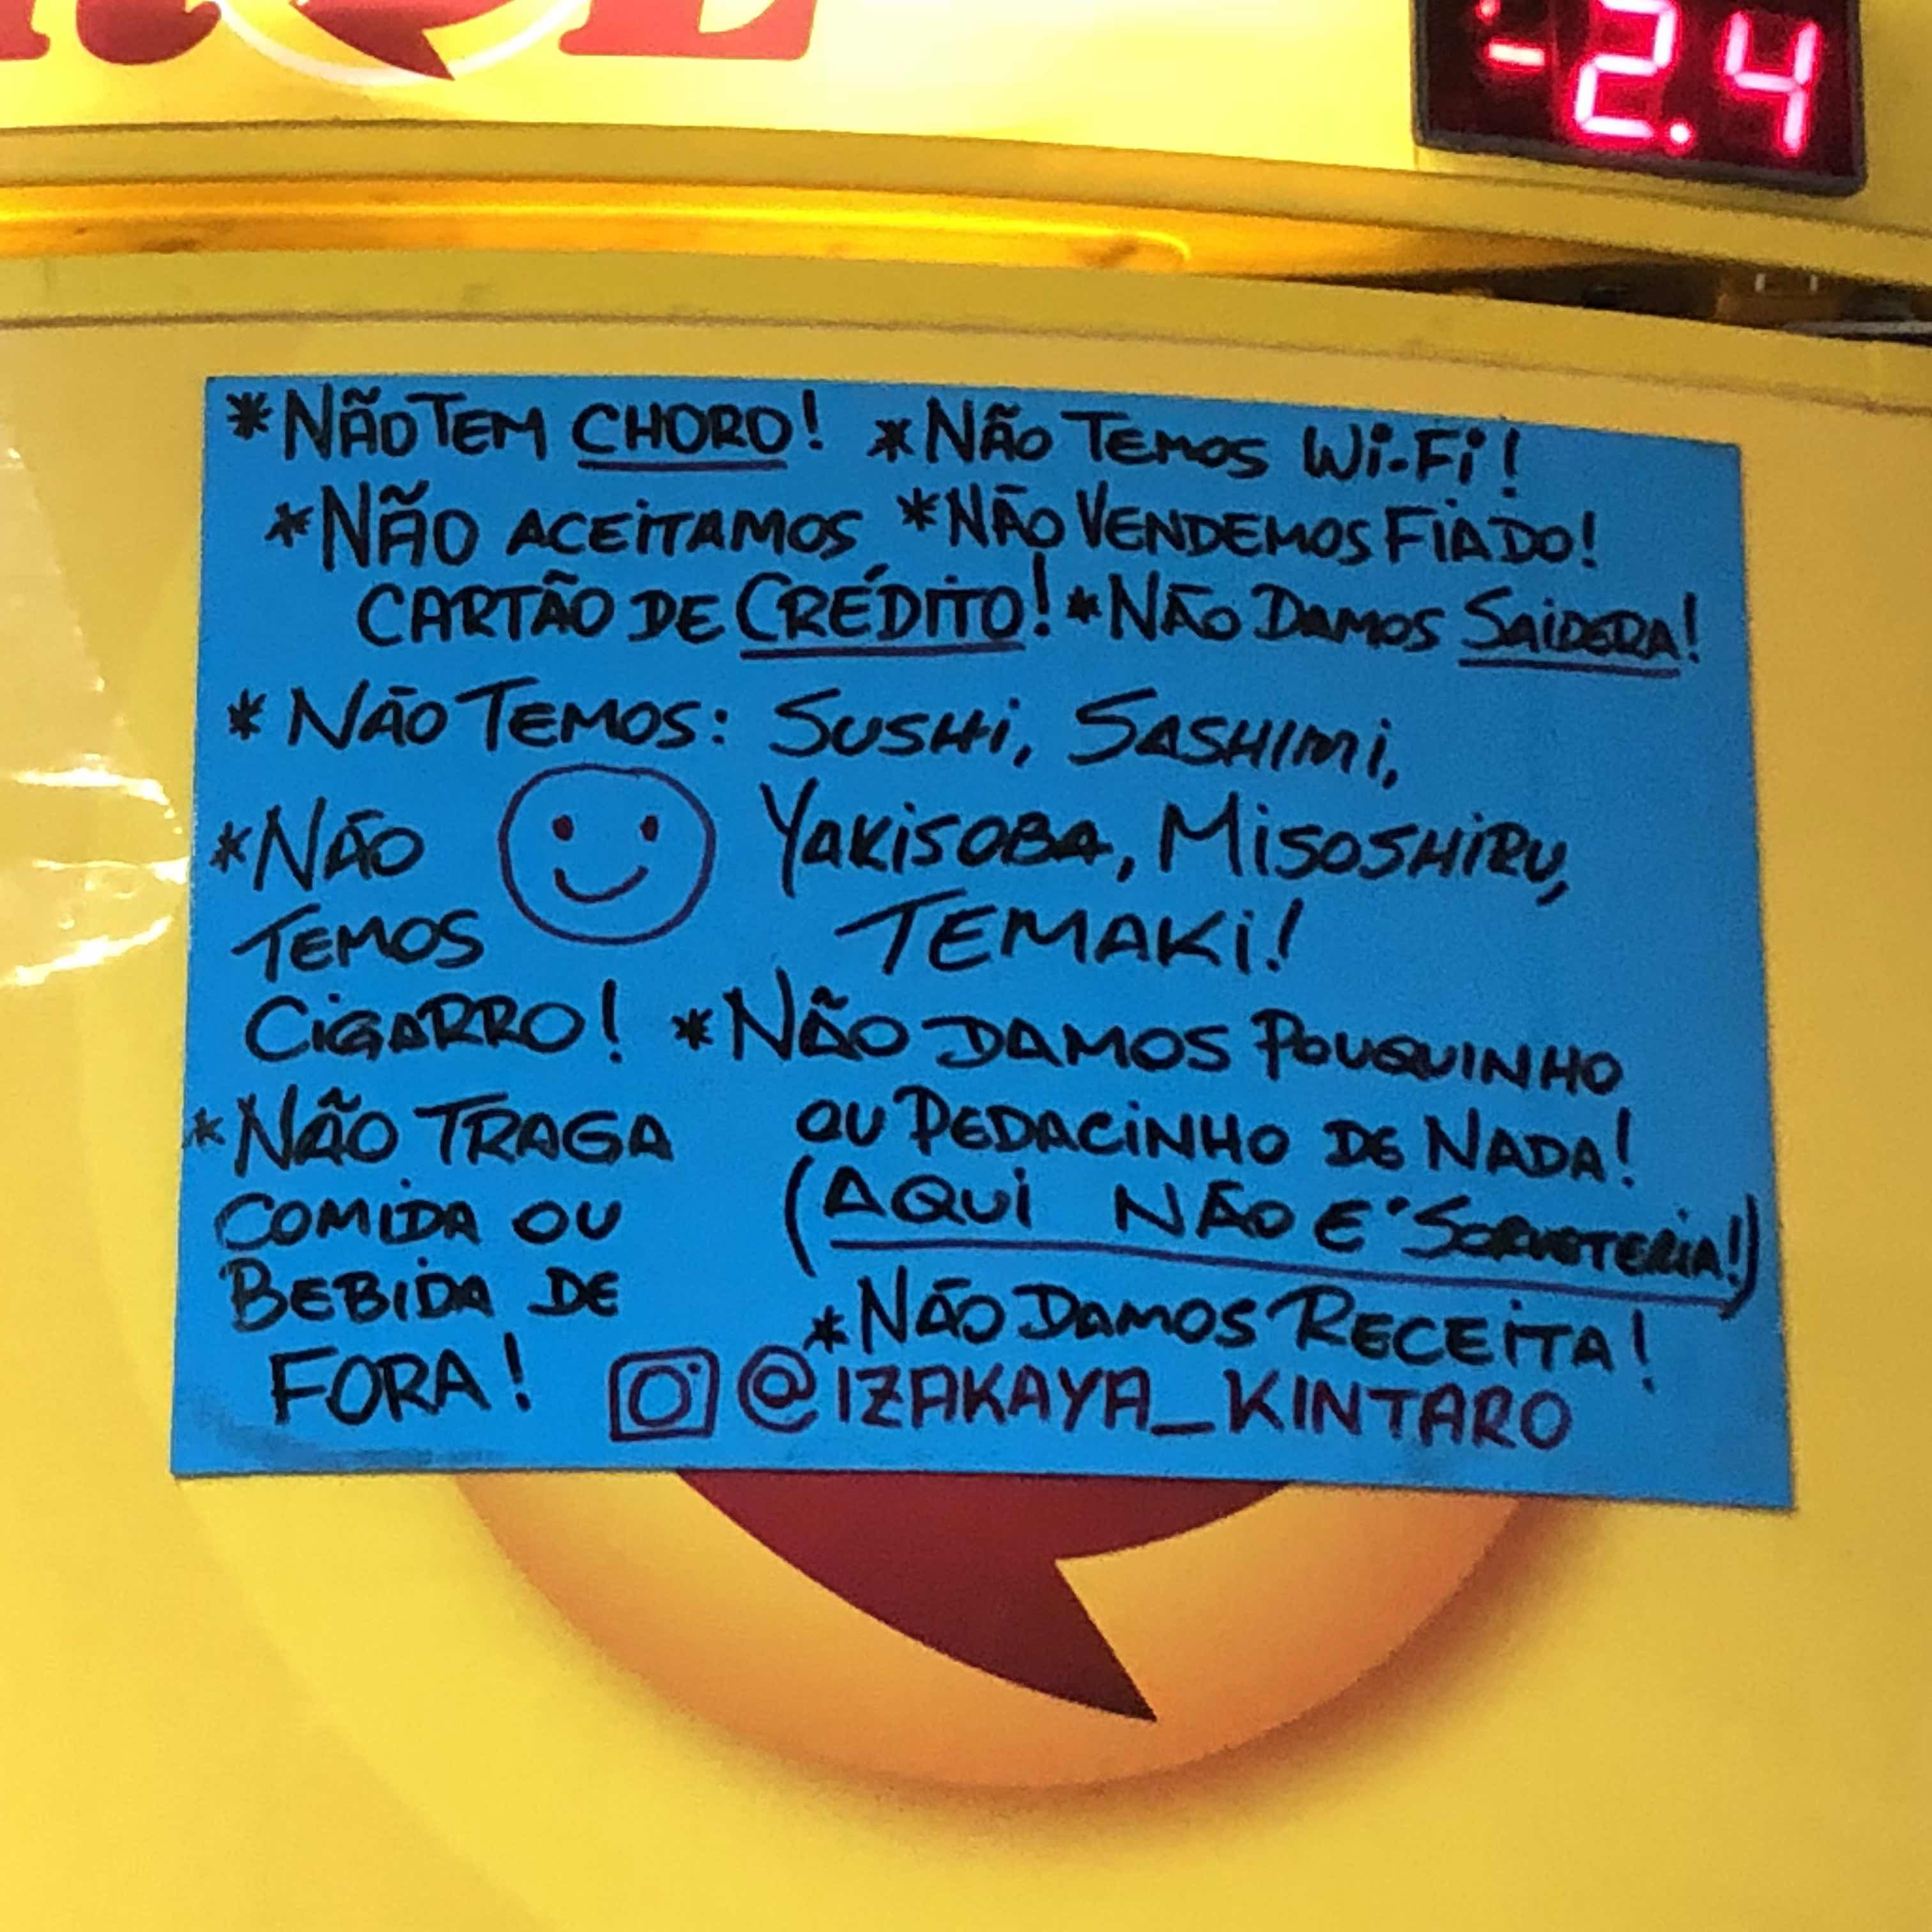 -2.4
*NÃO TEM CHORO! *NÃO TEMOS Wi-Fi!
*NÃO ACEITAMOS
CARTÃO DE CRÉDITO!
*NÃO VENDEMOS FIADO!
*NÃO DAMOS SAIDERA!
*NÃO TEMOS: SUSHI, SASHIMI,
YAKISOBA, MISOSHIRU,
TEMAKI!
*NÃO
TEMOS
CIGARRO!
*NÃO DAMOS POUQUINHO
OU PEDACINHO DE NADA!
(AQUI NÃO É SORVETERIA!)
*NÃO TRAGA
COMIDA OU
BEBIDA DE
FORA!
*NÃO DAMOS RECEITA!
@IZAKAYA_KINTARO